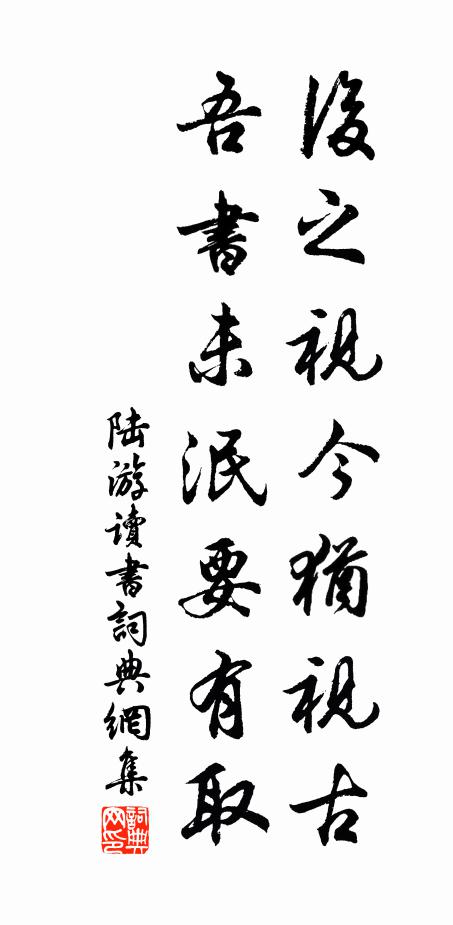 後之視今猶視古
吾書未泯要有取
陆游讀書詞典網集
詞典网印